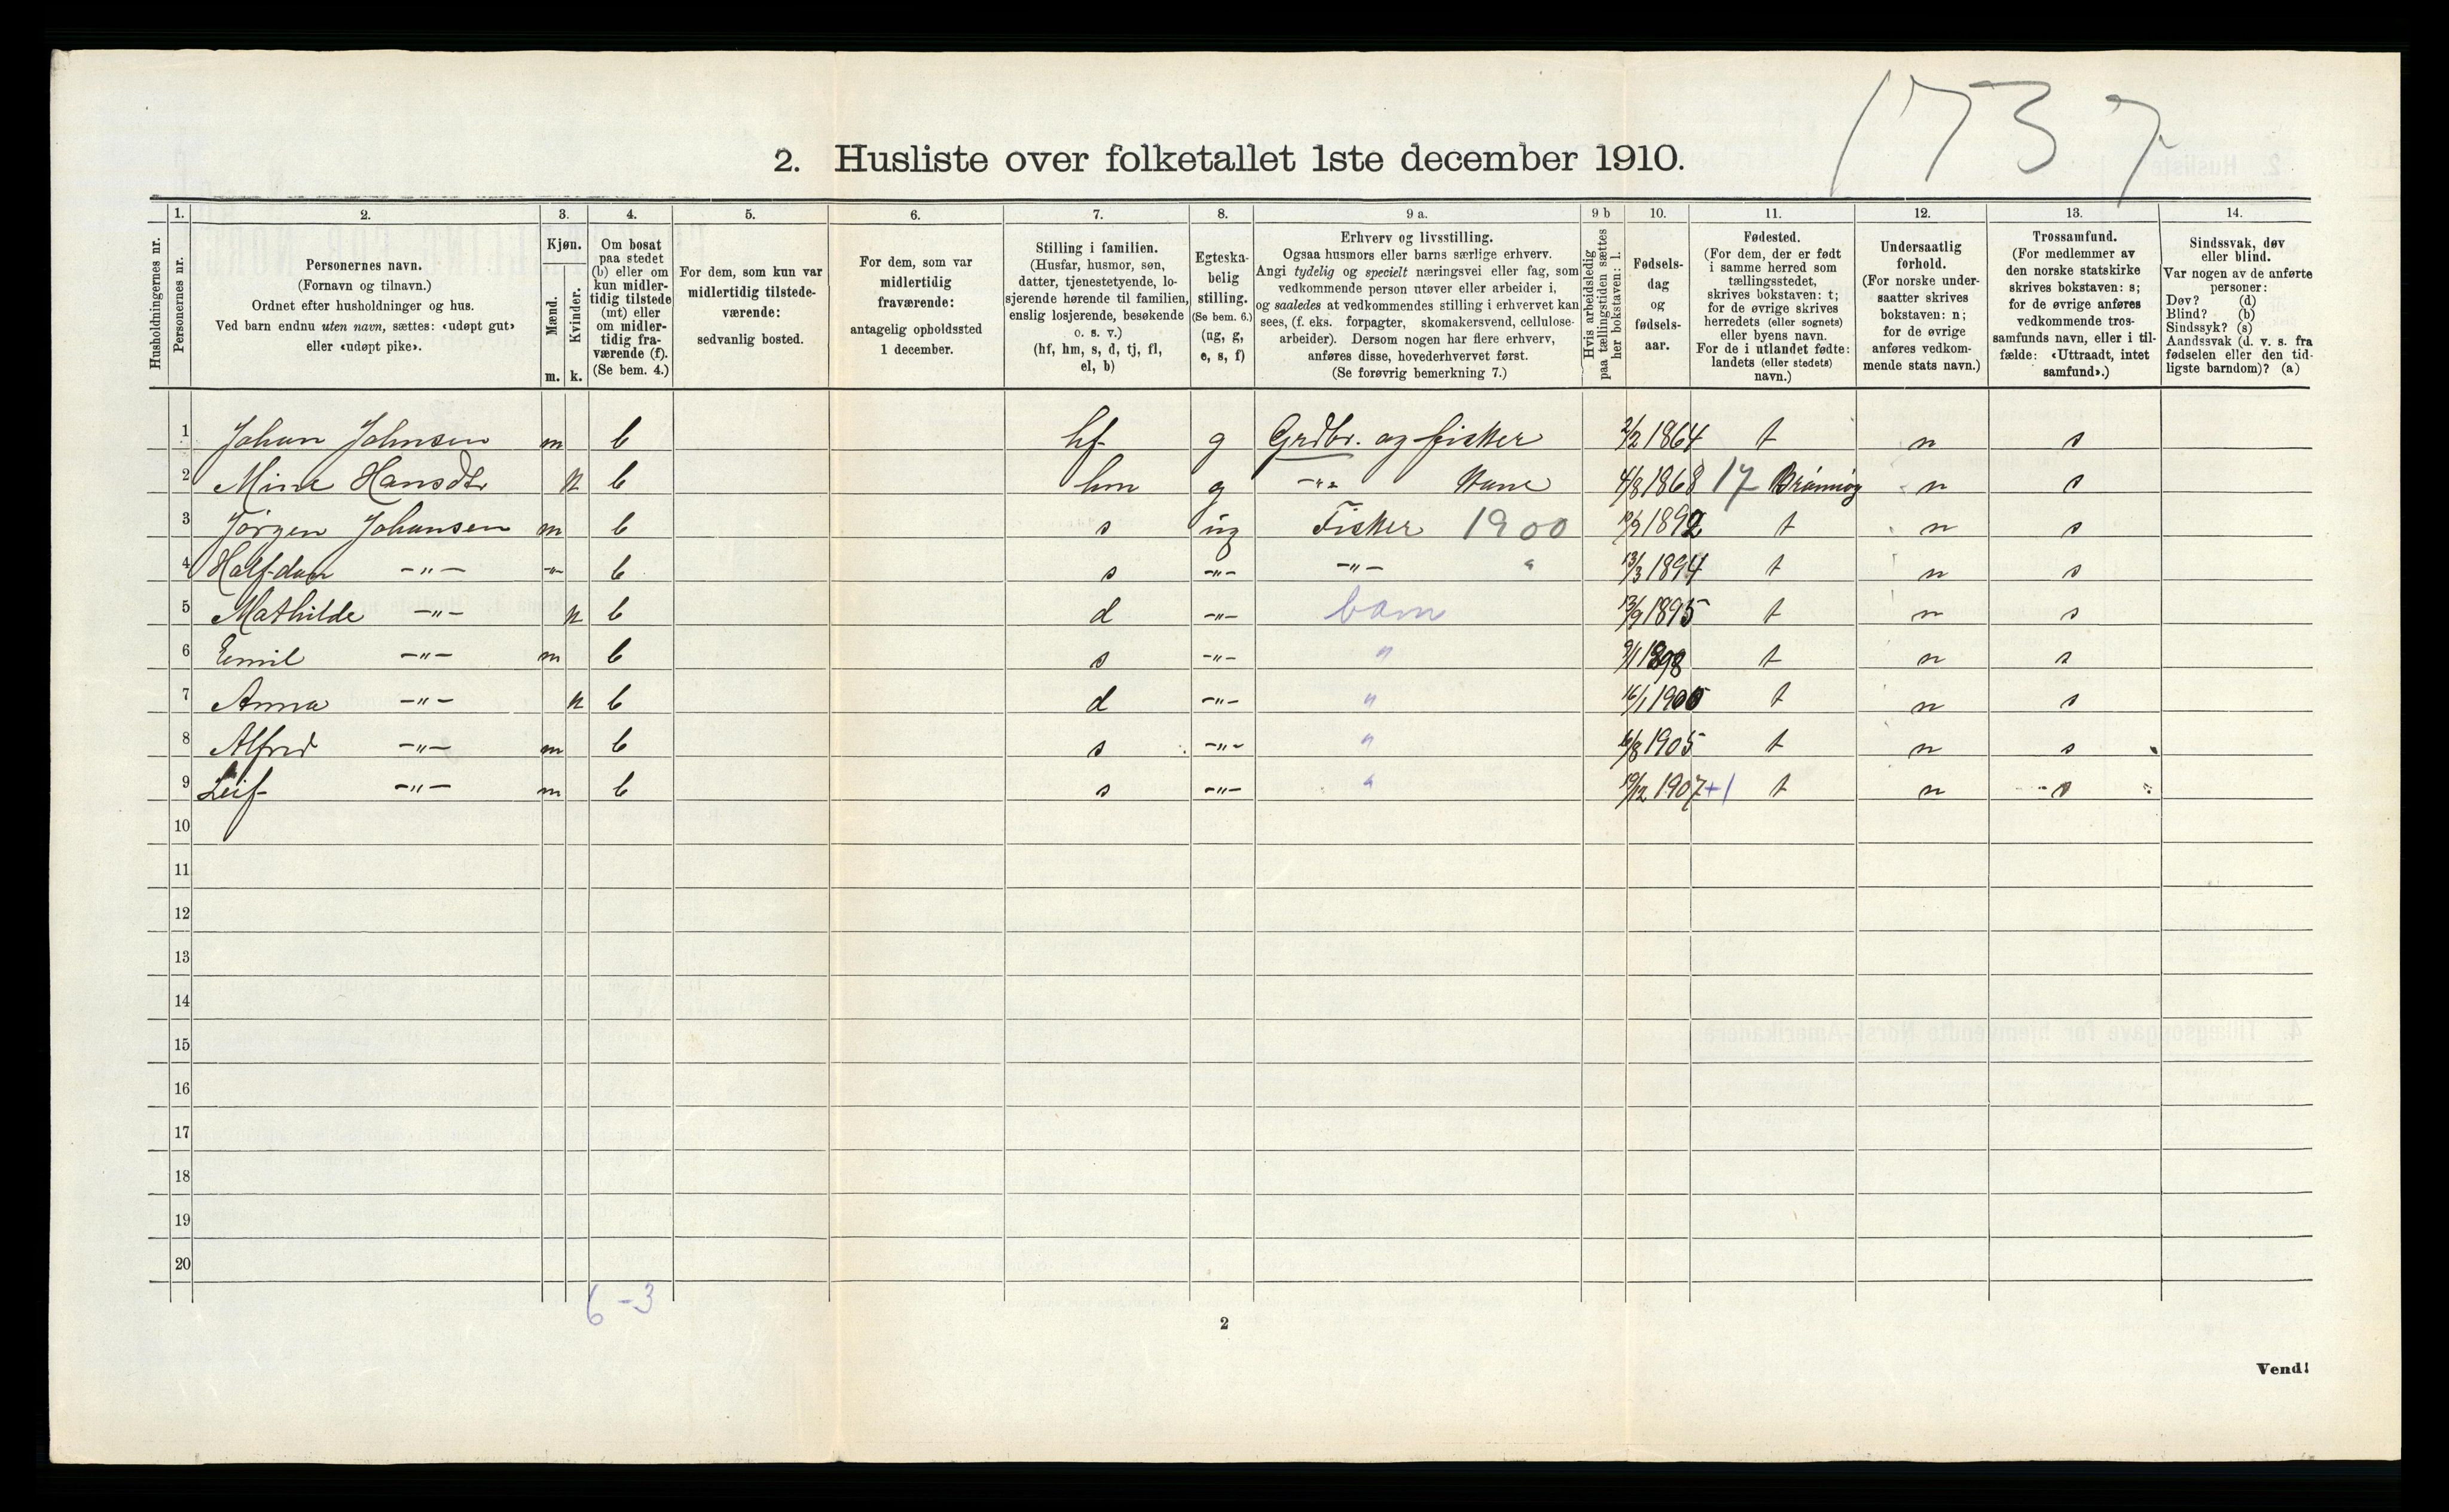 1737
2. Husliste over folketallet 1ste december 1910.
Husholdningernes nr.
1.
Personernes nr.
2.
Personernes navn.
(Fornavn og tilnavn.)
Ordnet efter husholdninger og hus.
Ved barn endnu uten navn, sættes: «udøpt gut»
eller «udøpt pike».
3.
Kjøn.
Mænd.
Kvinder.
m. k.
4.
Om bosat
paa stedet
(b) eller om
kun midler-
tidig tilstede
(mt) eller
om midler-
tidig fra-
værende (f).
(Se bem. 4.)
5.
For dem, som kun var
midlertidig tilstede-
værende:
sedvanlig bosted.
6.
For dem, som var
midlertidig
fraværende:
antagelig opholdssted
1 december.
7.
Stilling i familien.
(Husfar, husmor, søn,
datter, tjenestetyende, lo-
sjerende hørende til familien,
enslig losjerende, besøkende
o. s. v.)
(hf, hm, s, d, tj, fl,
el, b)
8.
Egteska-
belig
stilling.
(Se bem. 6.)
(ug, g,
e, s, f)
9 a.
Erhverv og livsstilling.
Ogsaa husmors eller barns særlige erhverv.
Angi tydelig og specielt næringsvei eller fag, som
vedkommende person utøver eller arbeider i,
og saaledes at vedkommendes stilling i erhvervet kan
sees, (f. eks. forpagter, skomakersvend, cellulose-
arbeider). Dersom nogen har flere erhverv,
anføres disse, hovederhvervet først.
(Se forøvrig bemerkning 7.)
9 b
Hvis arbeidsledig
paa tællingstiden sættes
her bokstaven: l.
10.
Fødsels-
dag
og
fødsels-
aar.
11.
Fødested.
(For dem, der er født
i samme herred som
tællingsstedet,
skrives bokstaven: t;
for de øvrige skrives
herredets (eller sognets)
eller byens navn.
For de i utlandet fødte:
landets (eller stedets)
navn.)
12.
Undersaatlig
forhold.
(For norske under-
saatter skrives
bokstaven: n;
for de øvrige
anføres vedkom-
mende stats navn.)
13.
Trossamfund.
(For medlemmer av
den norske statskirke
skrives bokstaven: s;
for de øvrige anføres
vedkommende tros-
samfunds navn, eller i til-
fælde: «Uttraadt, intet
samfund».)
14.
Sindssvak, døv
eller blind.
Var nogen av de anførte
personer:
Døv? (d)
Blind? (b)
Sindssyk? (s)
Aandssvak (d. v. s. fra
fødselen eller den tid-
ligste barndom)? (a)
1 Johan Johnsen m b hf g Grdbr. og fisker 2/2 1864 t n s
2 Mine Hansdtr k b hm g -"- Kone 4/8 1868 17 Brønnøy n s
3 Jörgen Johansen m b s ug Fisker 1900 1892 t n s
4 Halfdan -"- -"- b s -"- -"- " 13/3 1894 t n s
5 Mathilde -"- k b d -"- barn 13/9 1895 t n s
6 Emil -"- m b s -"- " 9/1 1898 t n s
7 Anna -"- k b d -"- " 16/1 t n s
8 Alfred -"- m b s -"- " 1905 t n s
9 Leif -"- m b s -"- " 19/12 1907+1 t n s
10
11
12
13
14
15
16
17
18
19
20
6-3
2
Vend!